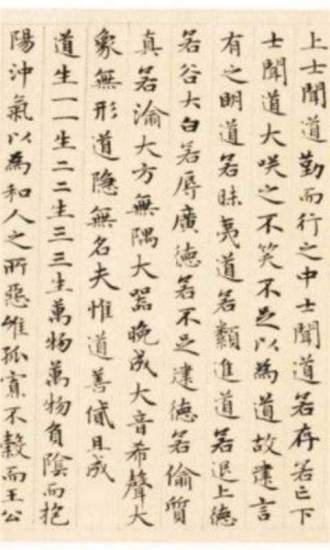 上士聞道勤而行之中士聞道若存若亡下
士聞道大咲之不笑不足以為道故建言
有之明道若昧夷道若類進道若退上德
若谷大白若辱廣德若不足建德若偷質
真若渝大方無隅大器晚成大音希聲大
象無形道隐無名夫惟道善貸且成
道生一一生二二生三三生萬物萬物負陰而抱
陽沖氣以為和人之所惡惟孤寡不穀而王公